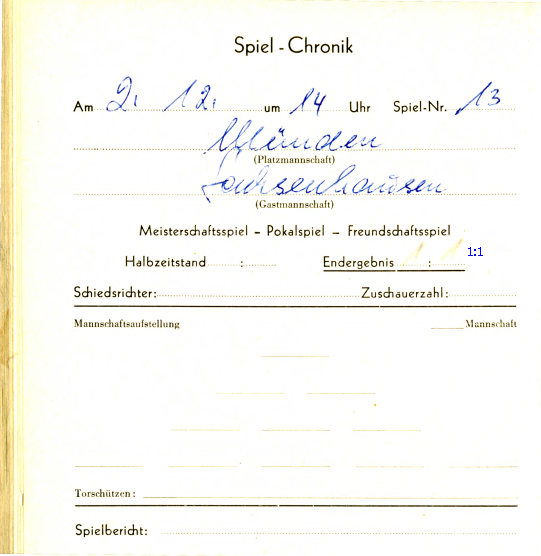 Spiel - Chronik
Am 2. 12. um 14 Uhr Spiel-Nr. 13
(Platzmannschaft)
Sachsenhausen
(Gastmannschaft)
Meisterschaftsspiel – Pokalspiel – Freundschaftsspiel
Halbzeitstand : Endergebnis 1 : 1 1:1
Schiedsrichter: Zuschauerzahl:
Mannschaftsaufstellung Mannschaft
Torschützen:
Spielbericht: